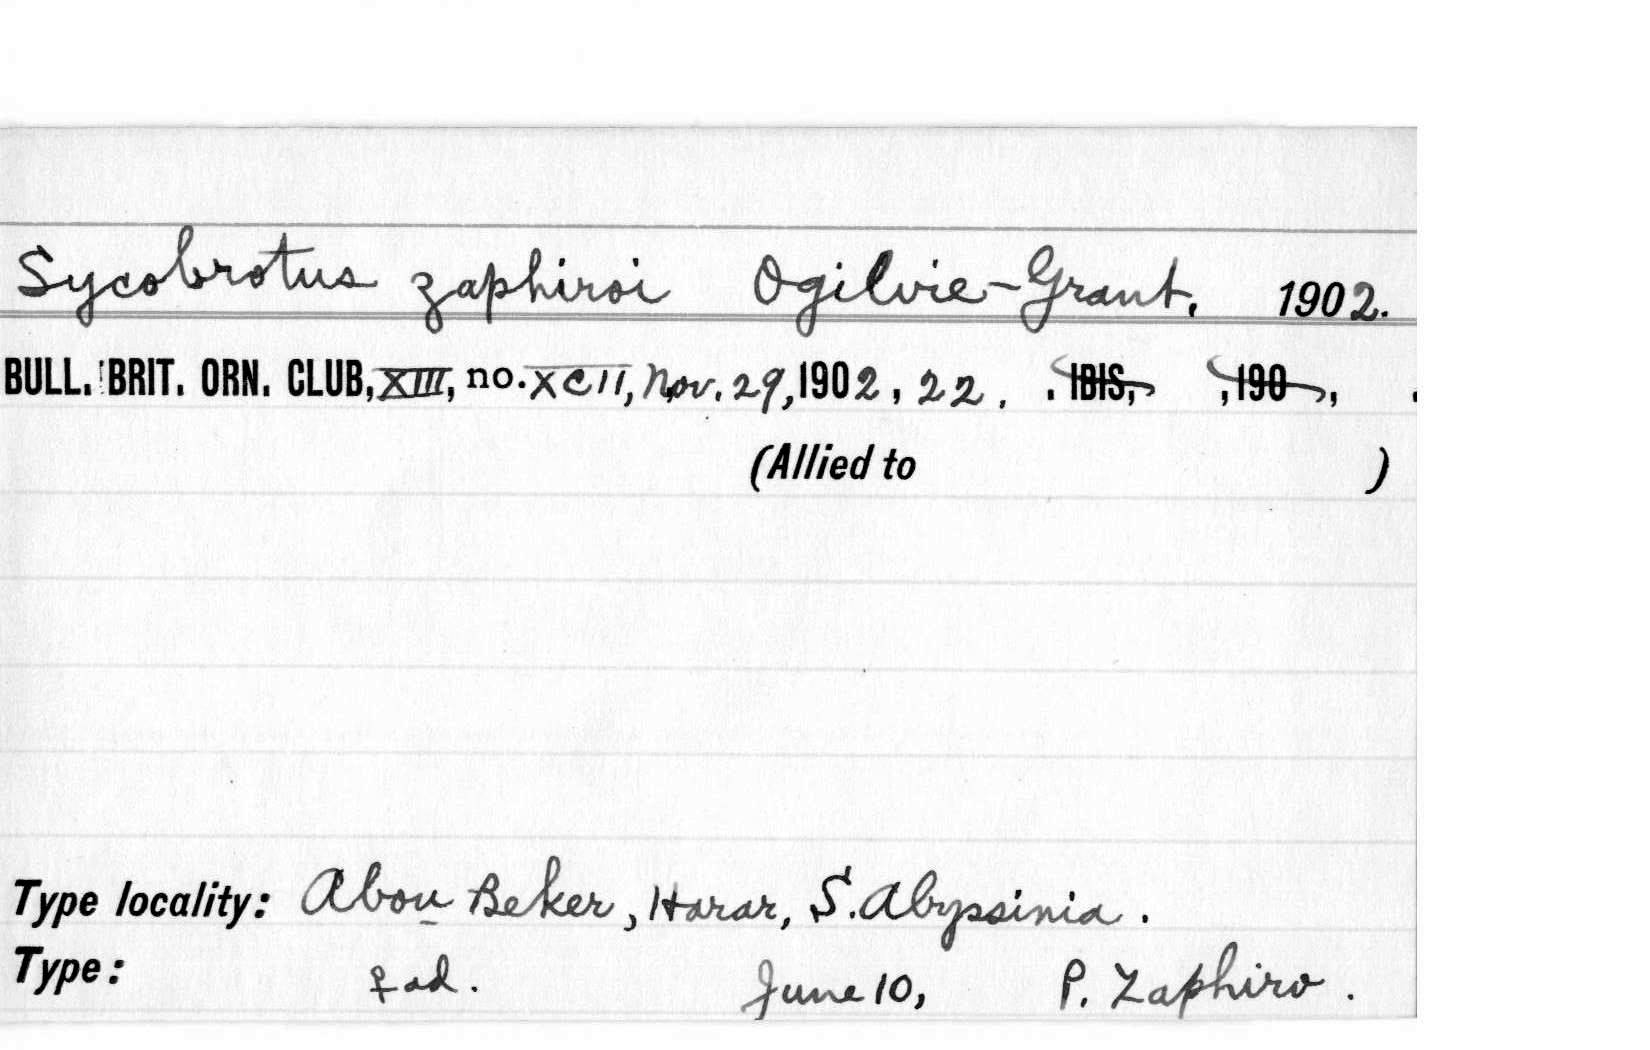 Sycobrotus zaphiroi Ogilvie-Grant, 1902.
BULL. BRIT. ORN. CLUB, XIII, no. XCII, Nov. 29, 1902, 22. . IBIS, , 190 , .
(Allied to )
Type locality: Abou Beker, Harar, S. Abyssinia.
Type: ♀ ad. June 10, P. Zaphiro.